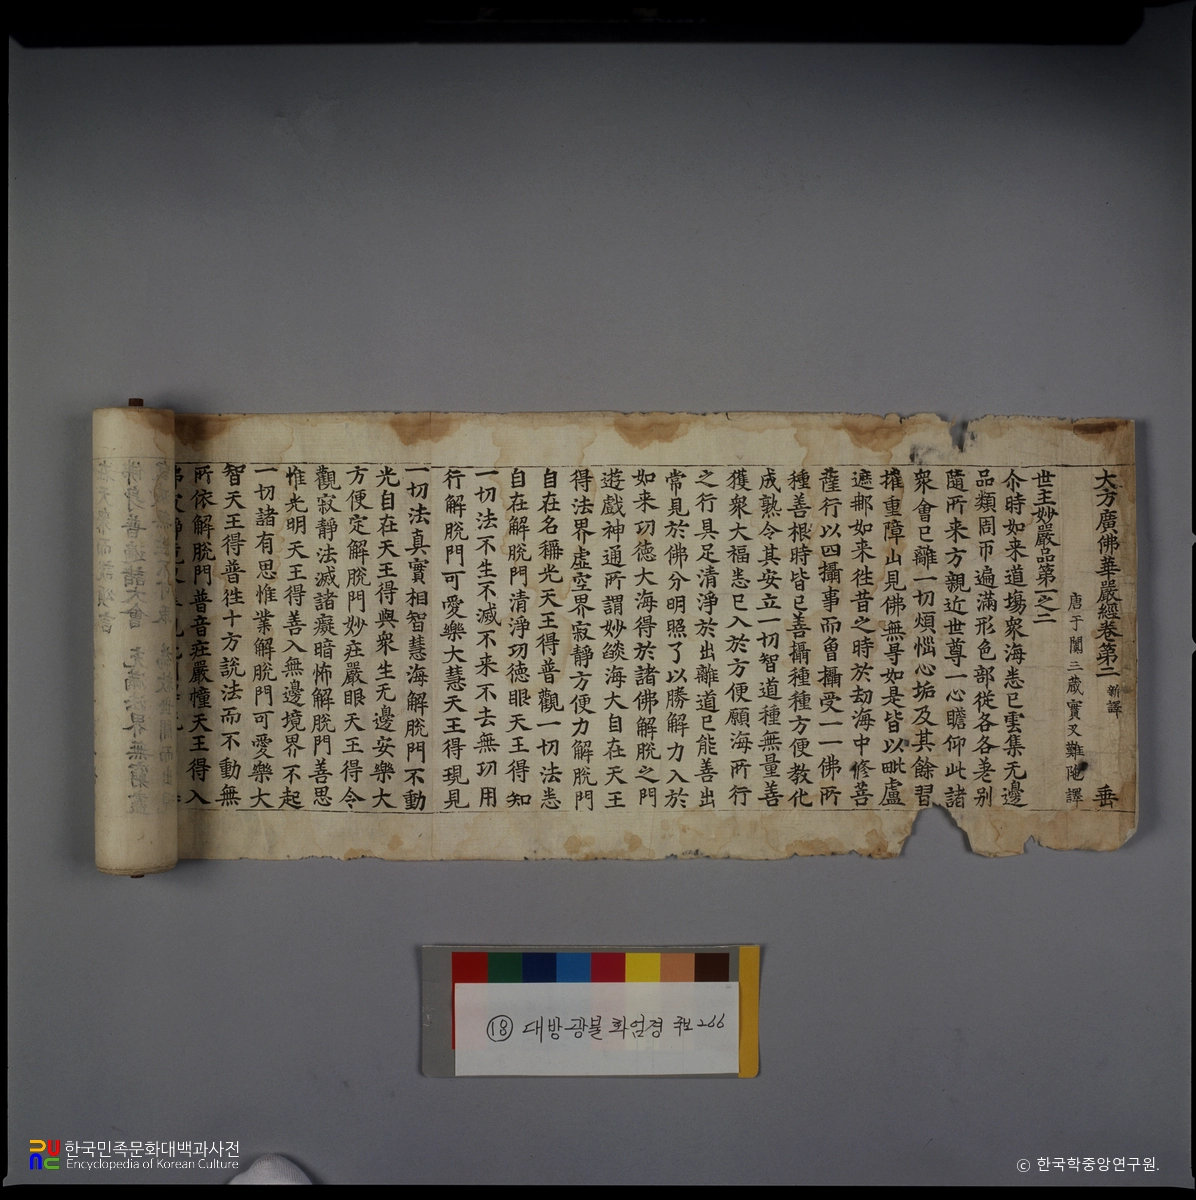 大方廣佛華嚴經卷第二 新譯 垂
唐于闐三藏實叉難陁譯
世主妙嚴品第一之二
尒時如来道塲衆海悉已雲集无邊
品類周帀遍滿形色部從各各差别
隨所来方親近世尊一心瞻仰此諸
衆會已離一切煩惱心垢及其餘習
摧重障山見佛無㝵如是皆以毗盧
遮那如来徃昔之時於劫海中修菩
薩行以四攝事而曽攝受一一佛所
種善根時皆已善攝種種方便教化
成熟令其安立一切智道種無量善
獲衆大福悉已入於方便願海所行
之行具足清淨於出離道已能善出
常見於佛分明照了以勝解力入於
如来功德大海得於諸佛解脫之門
遊戲神通所謂妙燄海大自在天王
得法界虛空界寂靜方便力解脫門
自在名稱光天王得普觀一切法悉
自在解脫門清淨功德眼天王得知
一切法不生不滅不来不去無功用
行解脫門可愛樂大慧天王得現見
一切法真實相智慧海解脫門不動
光自在天王得與衆生无邊安樂大
方便定解脫門妙莊嚴眼天王得令
觀寂靜法滅諸癡暗怖解脫門善思
惟光明天王得善入無邊境界不起
一切諸有思惟業解脫門可愛樂大
智天王得普徃十方說法而不動無
所依解脫門普音莊嚴幢天王得入
⑱ 대방광불화엄경 국보266
한국민족문화대백과사전
Encyclopedia of Korean Culture
ⓒ 한국학중앙연구원.